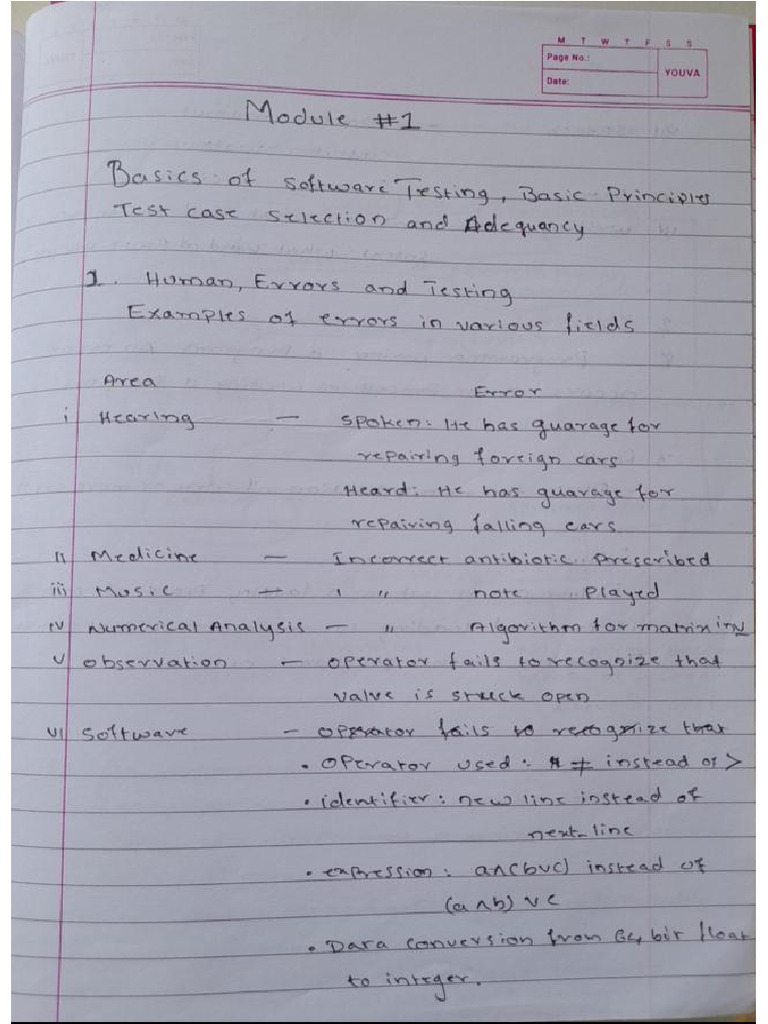 M T W T F S S
Page No.:
YOUVA
Date:
Module #1
Basics of software Testing, Basic Principles
Test case selection and Adequancy
1. Human, Errors and Testing
Examples of errors in various fields
Area Error
i Hearing — Spoken: He has guarage for
repairing foreign cars
Heard: He has guarage for
repairing falling cars
ii Medicine — Incorrect antibiotic prescribed
iii Music — ' " note played
iv Numerical Analysis — " Algorithm for matrix inv
v observation — operator fails to recognize that
valve is stuck open
vi Software — operator fails to recognize that
• Operator used: ≠ instead of >
• identifier: new line instead of
next-line
• expression: a∧(b∨c) instead of
(a∧b) ∨ c
• Data conversion from 64 bit float
to integer.